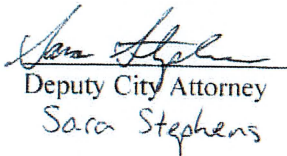 Sara Stephens
Deputy City Attorney
Sara Stephens